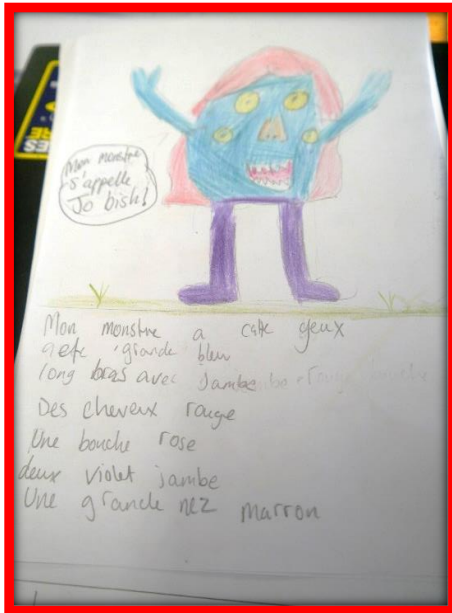 Mon monstre
s'appelle
Jo bish!
Mon monstre a catr yeux
grande bleu
long bras avec jambe
Des cheveux rouge
Une bouche rose
deux violet jambe
Une grande nez marron